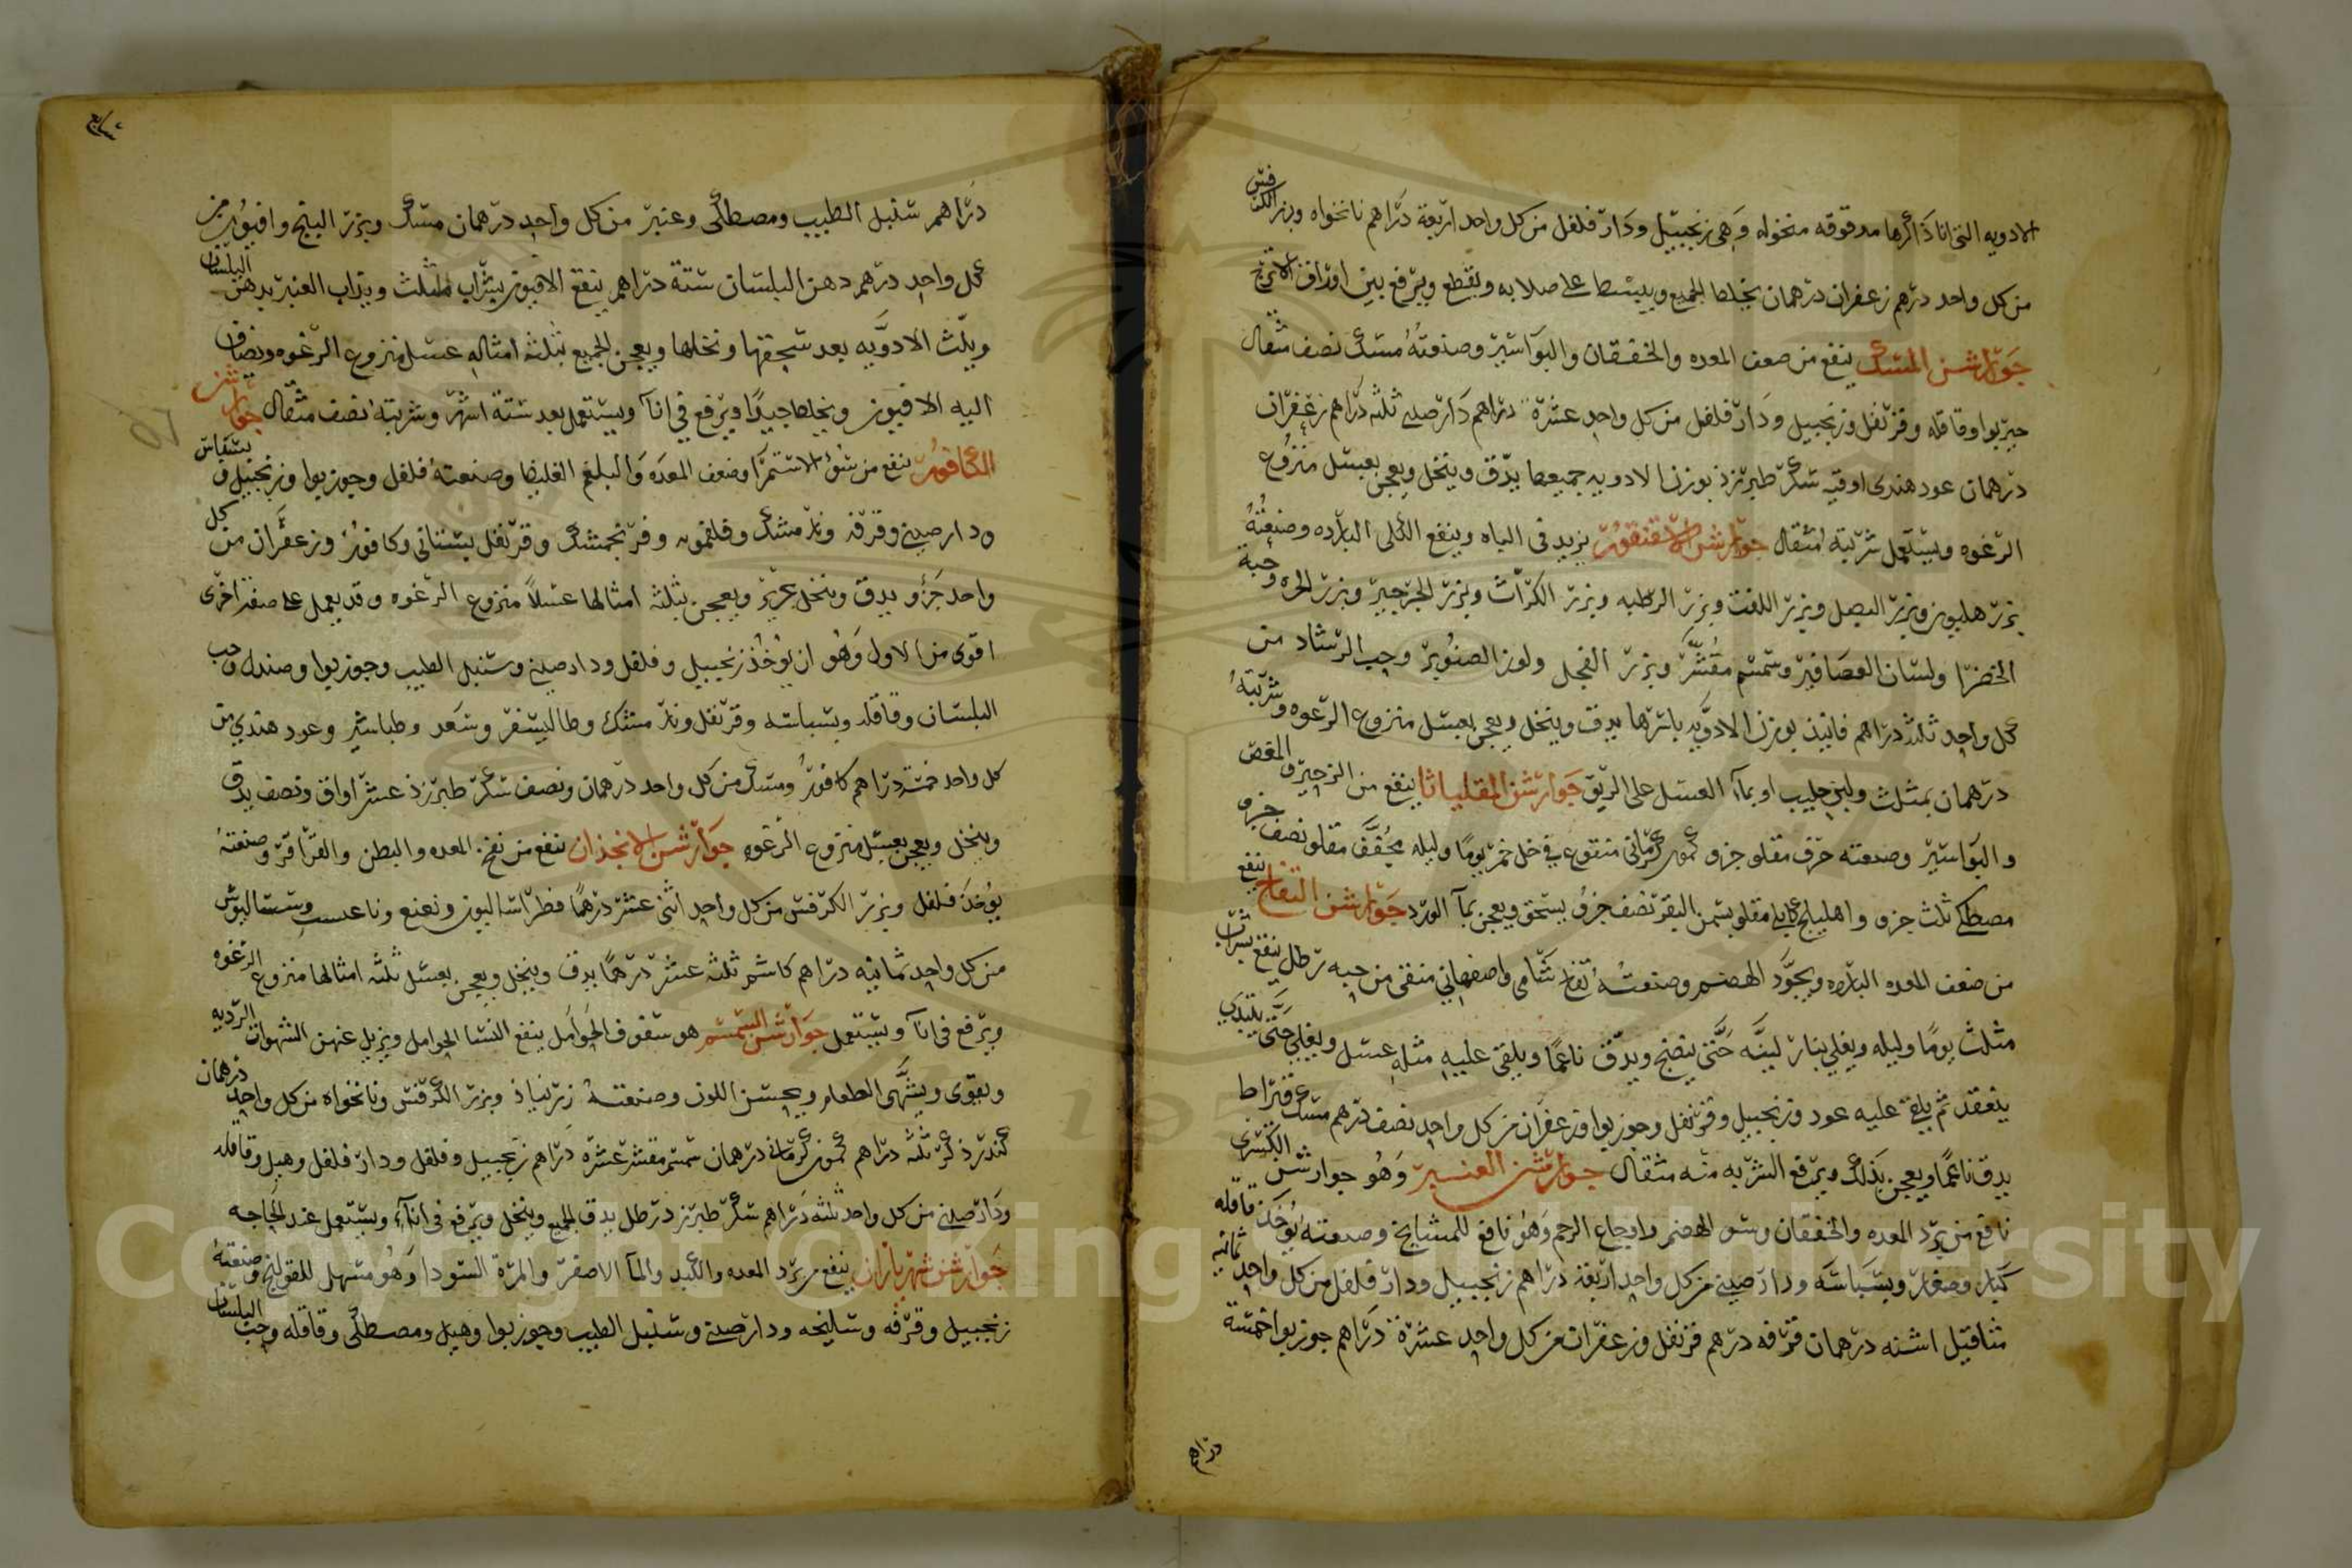 الادويه التى انا ذاكرها مدقوقه منخوله وهى زنجبيل ودار فلفل من كل واحد اربعة دراهم نانخواه وبزر الكرفس
من كل واحد درهم زعفران درهمان يخلط الجميع ويبسط على صلايه ويقطع ويرفع بين اوراق الاترج
جوارشن المسك ينفع من ضعف المعده والخفقان والبواسير وصنعته مسك نصف مثقال
خيربوا وقاقله وقرنفل وزنجبيل ودار فلفل من كل واحد عشرة دراهم دارصينى ثلثه دراهم زعفران
درهمان عود هندى اوقيه سكر طبرزذ بوزن الادويه جميعها يدق وينخل ويعجن بعسل منزوع
الرغوه ويستعمل شربته مثقال جوارشن الاسقنقور يزيد فى الباه وينفع الكلى البارده وصنعته
بزر هليون وبزر البصل وبزر اللفت وبزر الرطبه وبزر الكراث وبزر الجرجير وبزر الجزر وحبة
الخضرا ولسان العصافير وسمسم مقشر وبزر الفجل ولوز الصنوبر وحب الرشاد من
كل واحد ثلثة دراهم فانيذ بوزن الادويه باسرها يدق وينخل ويعجن بعسل منزوع الرغوه وشربته
درهمان بمثلث ولبن حليب او بمآ العسل على الريق جوارشن المقلياثا ينفع من الزحير والمغص
والبواسير وصنعته حرف مقلو جزو كمون كرمانى منقوع فى خل خمر يومًا وليله مجفف مقلو نصف جزو
مصطكى ثلث جزو واهليلج كابلى مقلو بسمن البقر نصف جزو يسحق ويعجن بمآ الورد جوارشن التفاح ينفع
من ضعف المعده البارده ويجود الهضم وصنعته تفاح شامى واصفهانى منقى من حبه رطل ينقع بشراب
مثلث يومًا وليله ويغلى بنار لينه حتى ينضج ويدق ناعمًا ويلقى عليه مثله عسل ويغلى حتى يبتدى
ينعقد ثم يلقى عليه عود وزنجبيل وقرنفل وجوزبوا وزعفران من كل واحد نصف درهم مسك قيراط
يدق ناعمًا ويعجن بذلك ويرفع الشربه منه مثقال جوارشن العنبر وهو جوارشن الكسرى
نافع من برد المعده والخفقان وسو الهضم واوجاع الرحم وهو نافع للمشايخ وصنعته يوخذ قاقله
كبار وصغار وبسباسه ودارصينى من كل واحد اربعة دراهم زنجبيل ودار فلفل من كل واحد ثمانيه
مثاقيل اشنه درهمان قرفه درهم قرنفل وزعفران من كل واحد عشرة دراهم جوزبوا خمسة
دراهم
دراهم سنبل الطيب ومصطكى وعنبر من كل واحد درهمان مسك وبزر البنج وافيون من
كل واحد درهم دهن البلسان ستة دراهم ينقع الافيون بشراب مثلث ويذاب العنبر بدهن البلسان
ويلث الادويه بعد سحقها ونخلها ويعجن الجميع بثلثة امثاله عسل منزوع الرغوه ويضاف
اليه الافيون ويخلط جيدًا ويرفع فى انآ ويستعمل بعد ستة اشهر وشربته نصف مثقال جوارشن
الكافور ينفع من سو الاستمرا وضعف المعده والبلغم الغليظ وصنعته فلفل وجوزبوا وزنجبيل وبسباسه
ودارصينى وقرفه ونارمشك وقلقمونه وفرنجمشك وقرنفل بستانى وكافور وزعفران من كل
واحد جزو يدق وينخل بحرير ويعجن بثلثة امثالها عسلًا منزوع الرغوه وقد يعمل على صفة اخرى
اقوى من الاول وهو ان يوخذ زنجبيل وفلفل ودارصينى وسنبل الطيب وجوزبوا وصندل وحب
البلسان وقاقله وبسباسه وقرنفل ونارمشك وطاليسفر وسعد وطباشير وعود هندي من
كل واحد خمسة دراهم كافور ومسك من كل واحد درهمان ونصف سكر طبرزذ عشر اواق ونصف يدق
وينخل ويعجن بعسل منزوع الرغوه جوارشن الانجذان ينفع من نفخ المعده والبطن والقراقر وصنعته
يوخذ فلفل وبزر الكرفس من كل واحد اثنى عشر درهمًا فطراساليون ونعنع وساليوس
من كل واحد ثمانيه دراهم كاشم ثلثه عشر درهمًا يدق وينخل ويعجن بعسل ثلثه امثالها منزوع الرغوه
ويرفع فى انآ ويستعمل جوارشن السمسم هو سفوف الحوامل ينفع النسا الحوامل ويزيل عنهن الشهوات الرديه
ويقوى ويشهى الطعام ويحسن اللون وصنعته زرنباذ وبزر الكرفس ونانخواه من كل واحد درهمان
كندر ذكر ثلثه دراهم كمون كرمانى درهمان سمسم مقشر عشره دراهم زنجبيل وفلفل ودار فلفل وهيل وقاقله
ودارصينى من كل واحد ثلثه دراهم سكر طبرزذ رطل يدق الجميع وينخل ويرفع فى انآء ويستعمل عند الحاجه
جوارشن شهرياران ينفع من برد المعده والكبد والمآ الاصفر والمرة السودا وهو مسهل للقولنج وصنعته
زنجبيل وقرفه وسليخه ودارصينى وسنبل الطيب وجوزبوا وهيل ومصطكى وقاقله وحب البلسان
Copyright © King Saud University